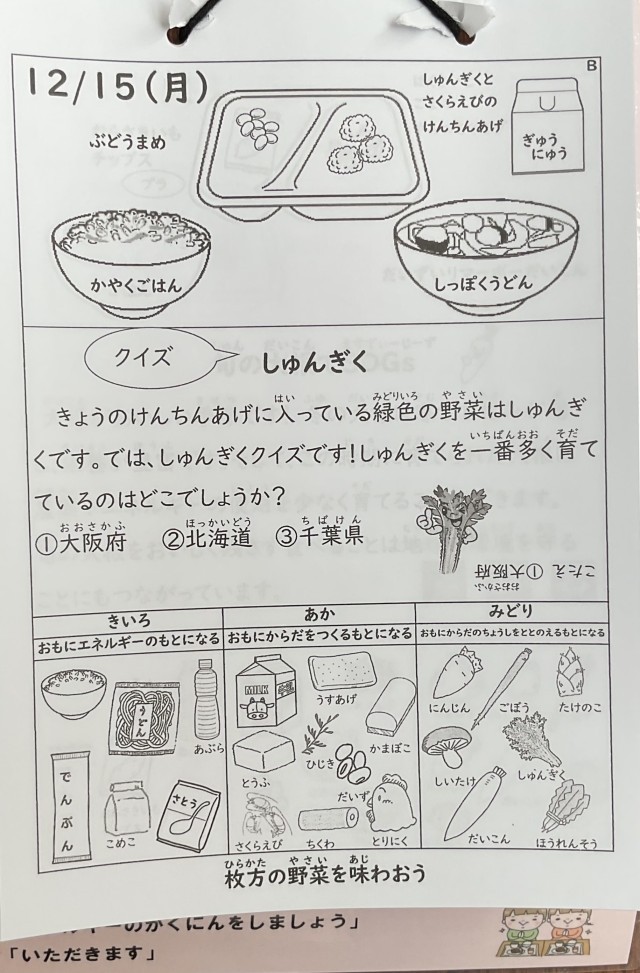 B
12/15(月)
しゅんぎくと
さくらえびの
けんちんあげ
ぶどうまめ
ぎゅう
にゅう
かやくごはん
しっぽくうどん
クイズ
しゅんぎく
きょうのけんちんあげに入っている緑色の野菜はしゅんぎ
はい みどりいろ やさい
くです。では、しゅんぎくクイズです!しゅんぎくを一番多く育て
いちばんおお そだ
ているのはどこでしょうか?
①大阪府 ②北海道 ③千葉県
おおさかふ ほっかいどう ちばけん
こたえ ①大阪府
おおさかふ
きいろ
おもにエネルギーのもとになる
あか
おもにからだをつくるもとになる
みどり
おもにからだのちょうしをととのえるもとになる
うどん
あぶら
でんぷん
こめこ
さとう
MILK
うすあげ
かまぼこ
とうふ
ひじき
だいず
さくらえび
ちくわ
とりにく
にんじん
ごぼう
たけのこ
しいたけ
しゅんぎく
だいこん
ほうれんそう
枚方の野菜を味わおう
ひらかた やさい あじ
のかくにんをしましょう」
「いただきます」